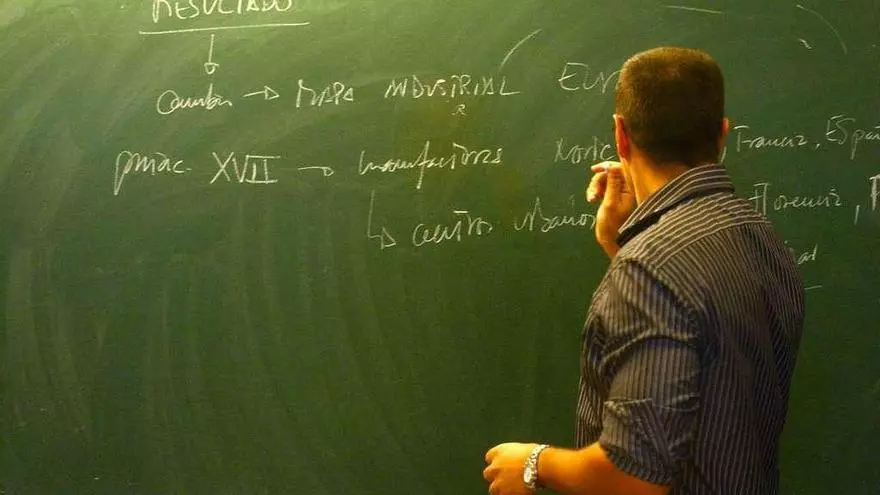 RESULTADO
Cambio → MAPA INDUSTRIAL EUR
XVII → manufactures Norte Francia, España
↳ centros Florencia,